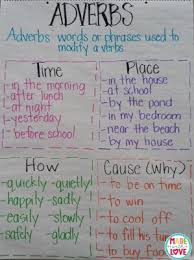 ADVERBS
Adverbs words or phrases used to
modify a verb.
Time
-in the morning
-after lunch
-at night
-yesterday
-before school
Place
-in the house
-at school
-by the pond
-in my bedroom
-near the beach
-by my house
How
-quickly -quietly
-happily -sadly
-easily -slowly
-safely -gladly
Cause (Why?)
-to be on time
-to win
-to cool off
-to fill his tum
-to buy food
MADE
with
LOVE